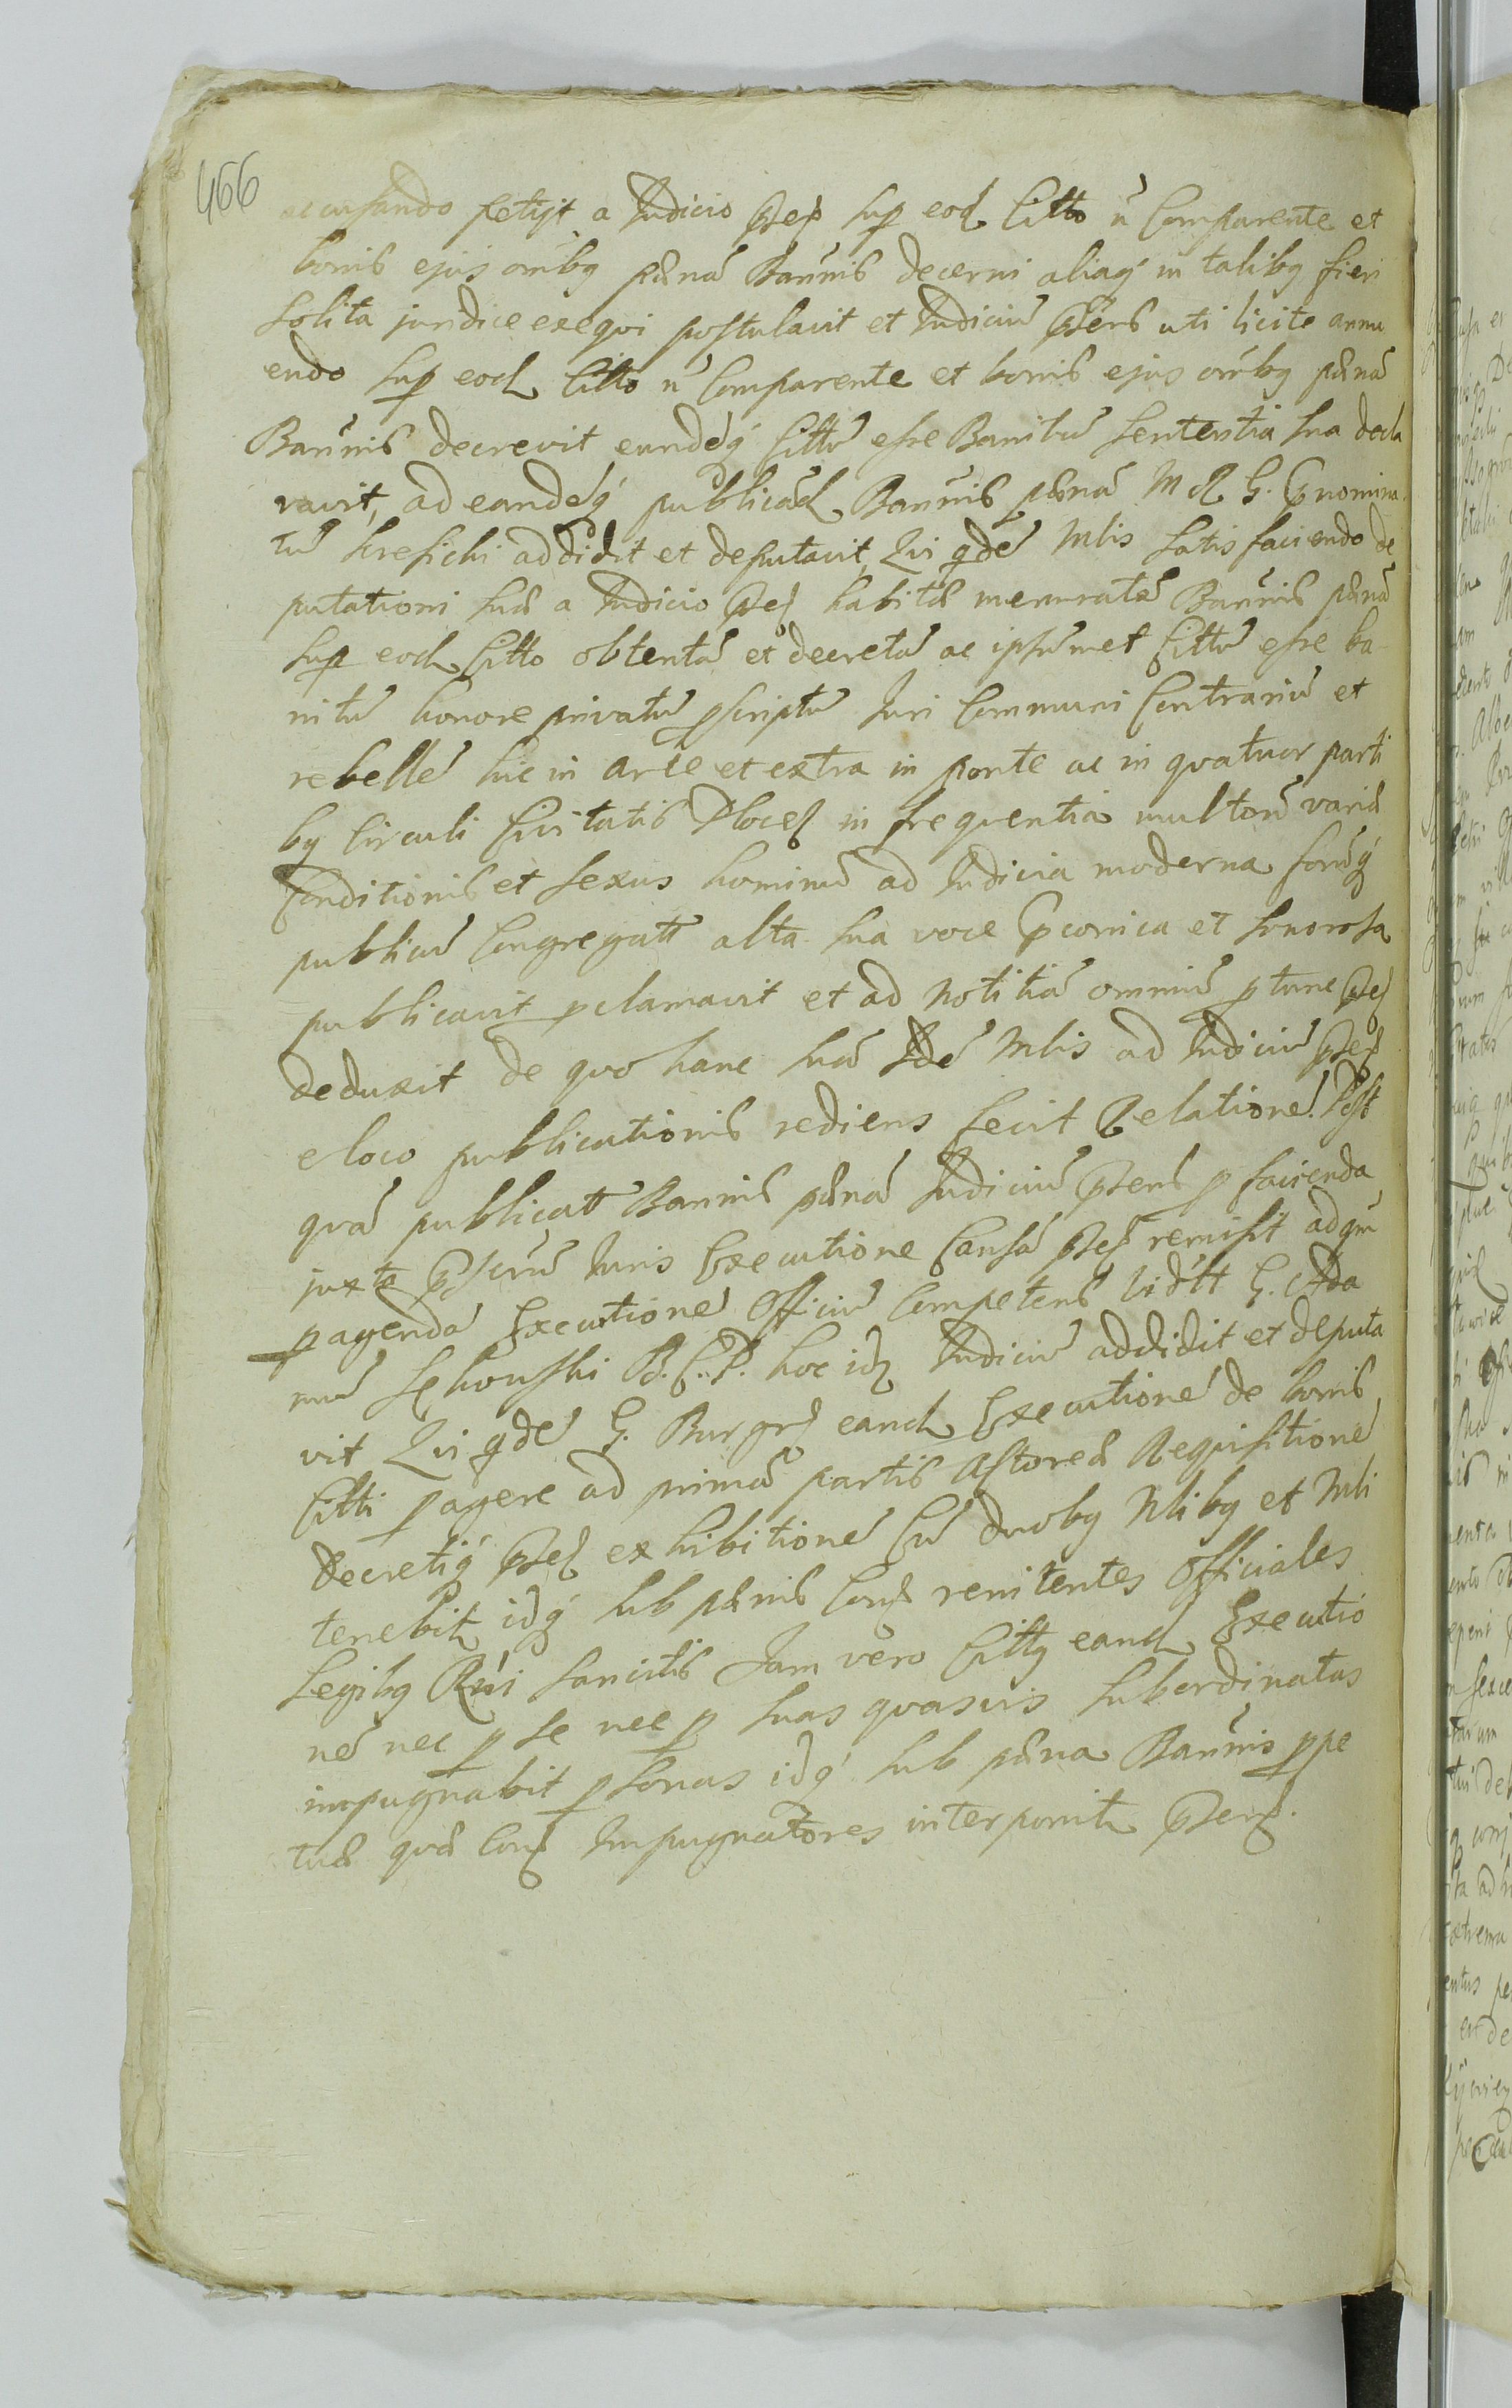 466
accusando petijt a Judicio pñti sup eod Citto ñ Comparente et
bonis ejus oĩbq pænã Bannis decerni aliaq́ in talibq fieri
solita juridice exequi postulavit et Judiciũ pñens uti licite annu
endo sup eod Citto ñ Comparente et bonis ejus oĩbq pænã
Bannis decrevit eundẽq́ Cittũ esse Banitũ sententia sua decla
ravit, ad eandẽq́ publicad Bannis pænã M R G. pnomina
tũ addidit et deputavit, Qui qdẽ Mlis satisfaciendo de
putationi suæ a Judicio pñti habitæ memoratã Bannis pænã
sup eod Citto obtentã et decretã ac ipsũmet Cittũ esse ba
nitũ honore privatũ pscriptũ Juri Communi Contrariũ et
rebellẽ hic in arce et extra in ponte ac in quatuor parti
bq Circuli Civitatis Ploceñ in frequentia multorũ variæ
Conditionis et sexus hominũ ad Judicia moderna forũq́
publicũ Congregatt alta sua voce pconica et sonorosa
publicavit pclamavit et ad notitiã omniũ ptunc pñ
deduxit de quo hanc suã Idẽ Mlis ad Judiciũ pñs
e loco publicationis rediens fecit Relationẽ. Post
quã publicatt Bannis pænã Judiciũ pñens p facienda
juxta pscriũ Juris Executione Causã pñ remisit ad qũ
pagendã Executionẽ Officiũ Competens vidtt G. Ada
mũ B. C. P. hoc idẽ Judiciũ addidit et deputa
vit Qui qdẽ G. Burgr eand Executionẽ de bonis
Citti pagere ad primã partis Actoreæ Requisitionẽ
Decretiq́ pñ exhibitionẽ Cũ duobq Nlibq et Mli
tenebit idq́ sub pænis Con renitentes Officiales
Legibq Rni sancitis Jam vero Cittq eand Executio
nẽ nec p se nec p suas quasvis subordinatas
impugnabit psonas idq́ sub pæna Bannis ppe
tuæ quæ Con Impugnatores interponit pñen.